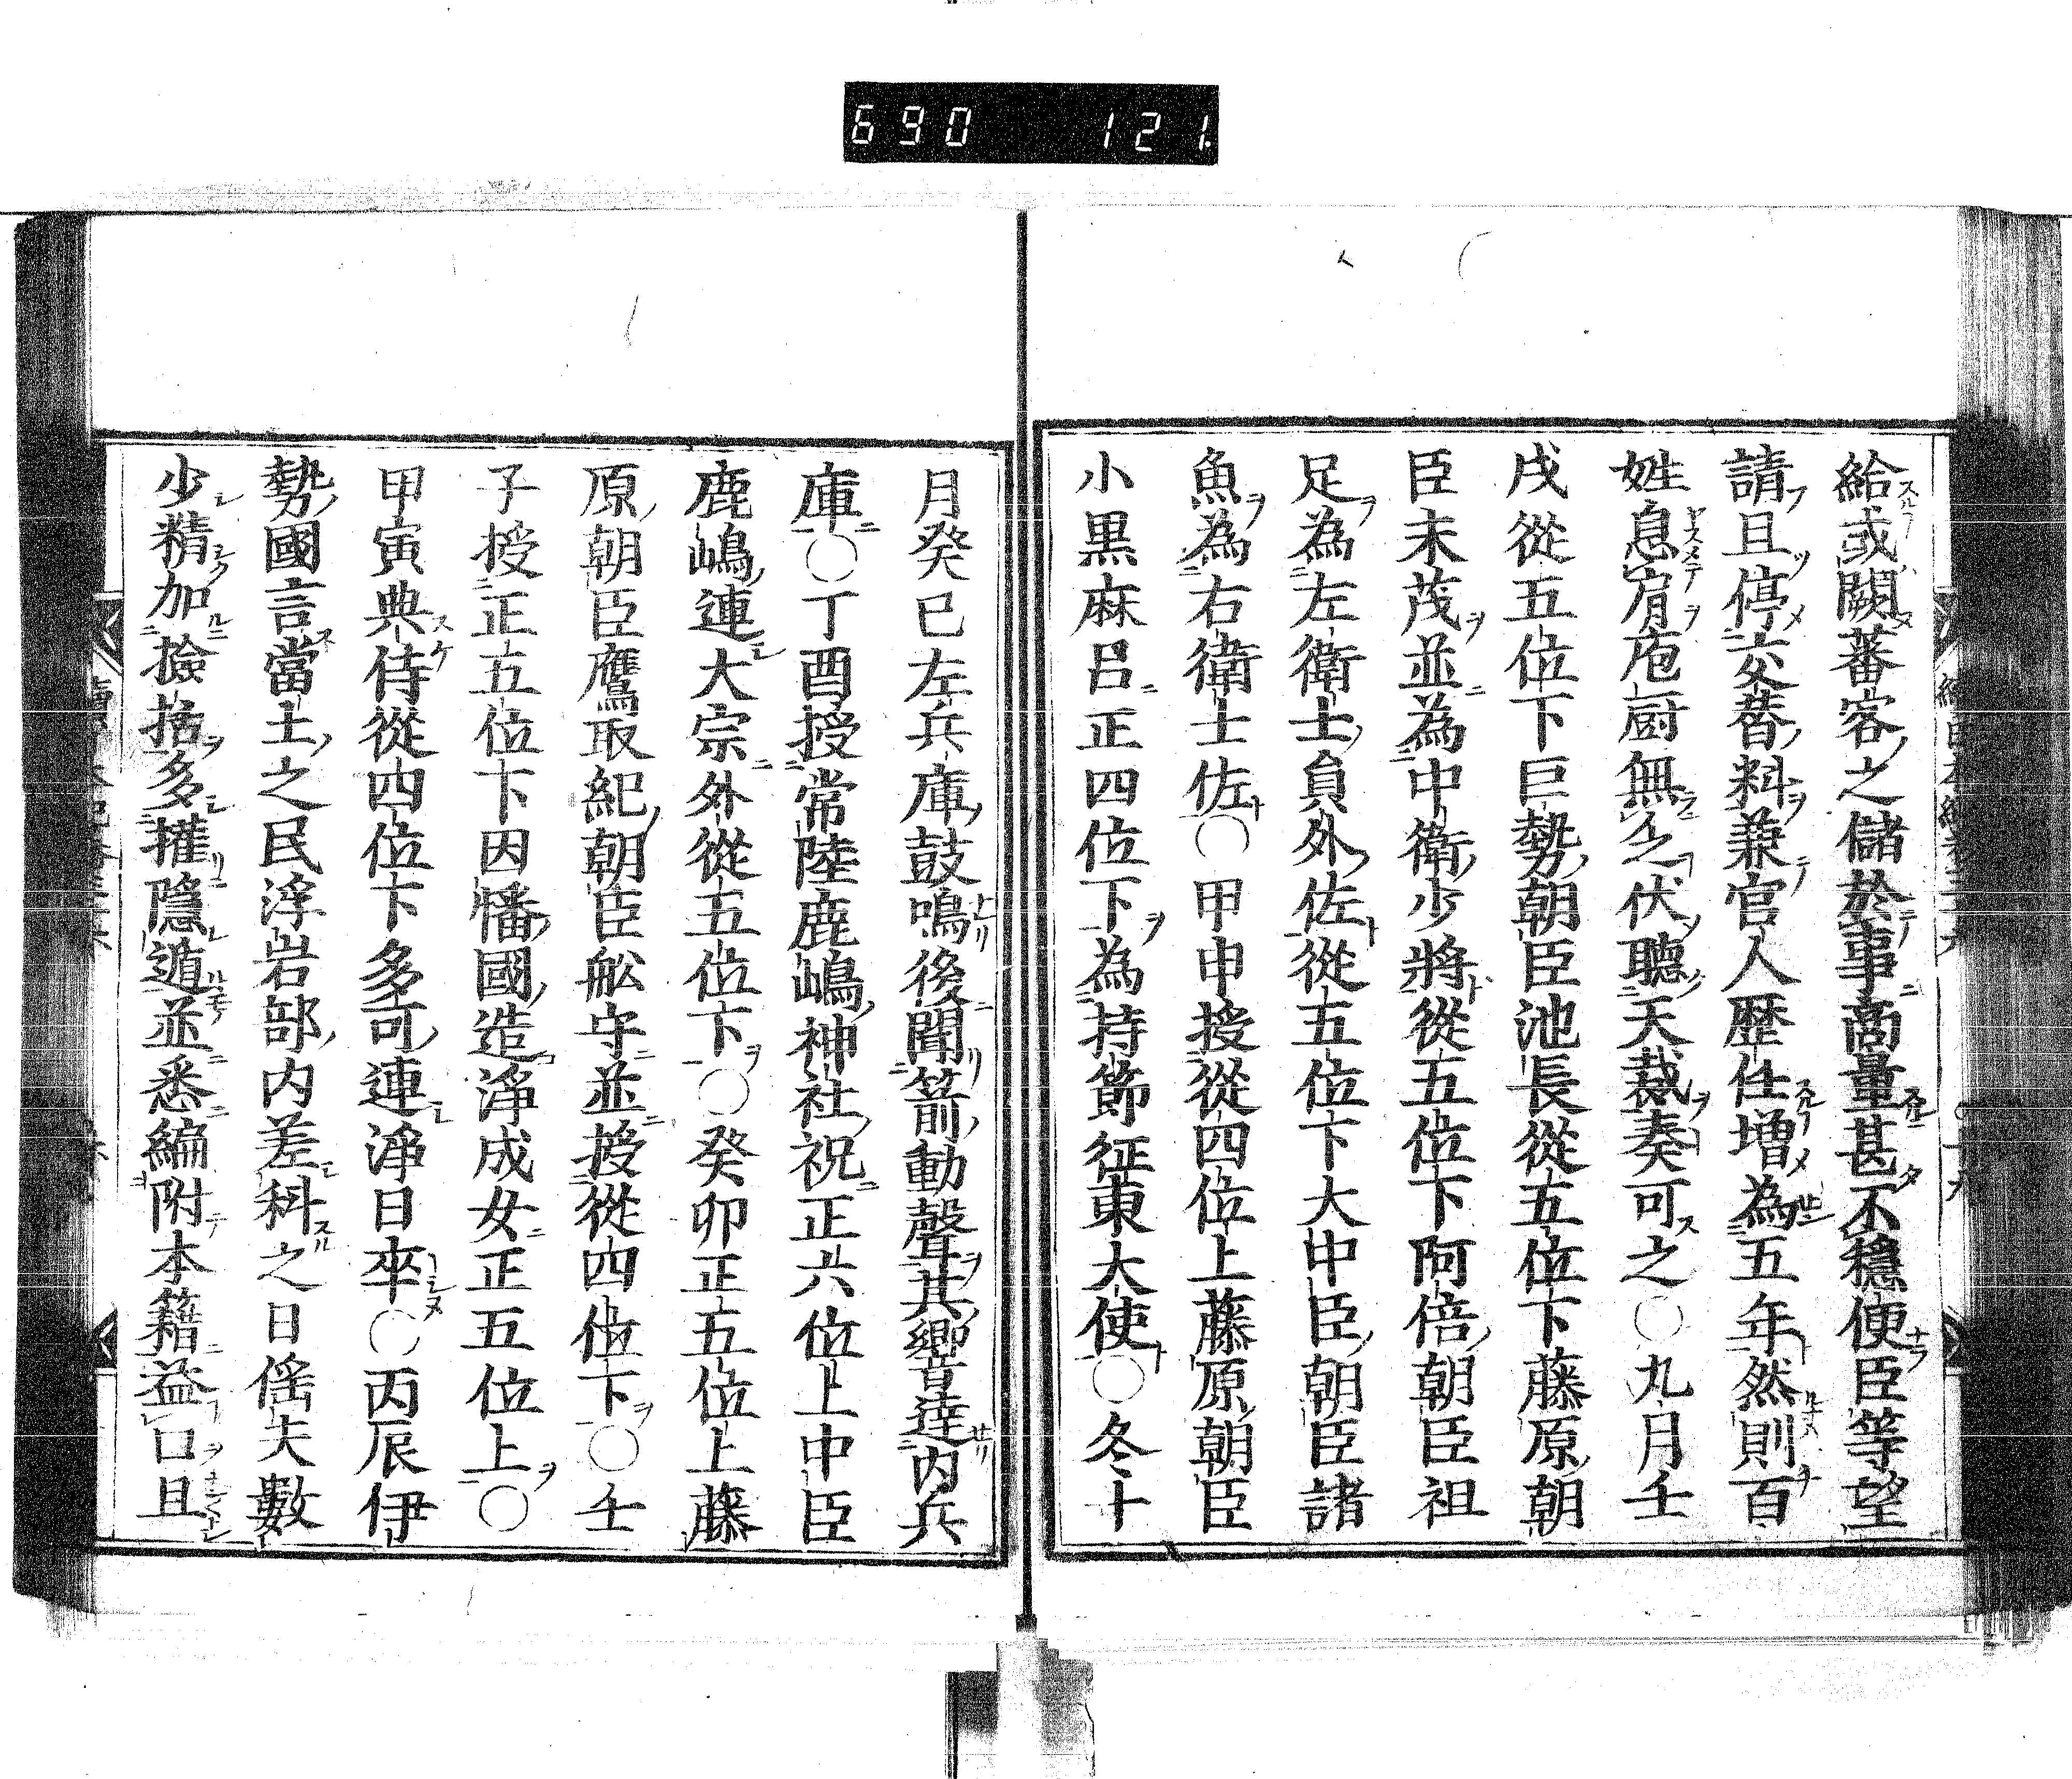 690 121.
給或闕蕃客之儲於事商量甚不穩便臣等望
請且停交替料兼官人歷任増為五年然則百
姓息肩庖厨無乏伏聽天裁奏可之〇九月壬
戌從五位下巨勢朝臣池長從五位下藤原朝
臣末茂並為中衛少將從五位下阿倍朝臣祖
足為左衛士員外佐從五位下大中臣朝臣諸
魚為右衛士佐〇甲申授從四位上藤原朝臣
小黒麻呂正四位下為持節征東大使〇冬十
月癸巳左兵庫鼓鳴後聞箭動聲其響達内兵
庫〇丁酉授常陸鹿嶋神社祝正六位上中臣
鹿嶋連大宗外從五位下〇癸卯正五位上藤
原朝臣鷹取紀朝臣舩守並授從四位下〇壬
子授正五位下因幡國造淨成女正五位上〇
甲寅典侍從四位下多可連淨日卒〇丙辰伊
勢國言當土之民浮宕部内差科之日徭夫數
少精加撿括多獲隱遁並悉編附本籍益口且